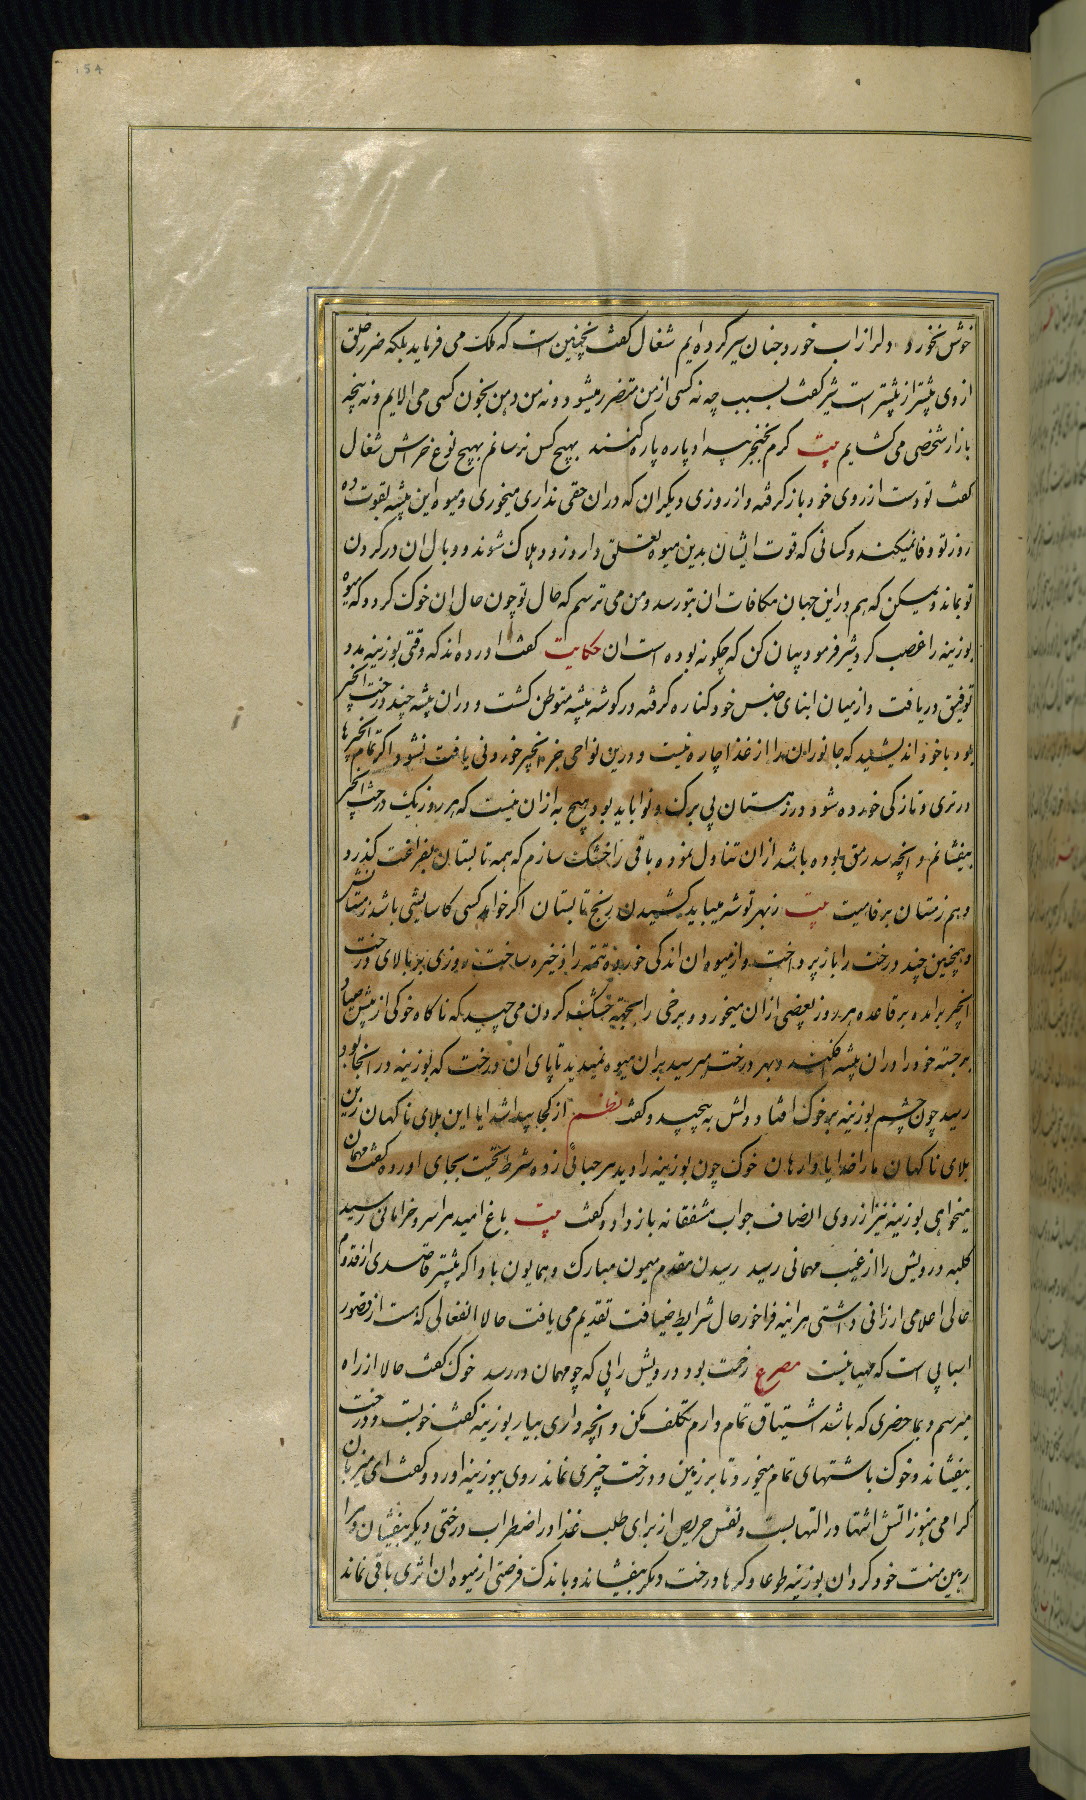 خوش نخورد و دل از آب خور و جنان سیر کرده ایم شغال گفت نچنین است که ملک می فرماید بلکه ضرر خلق
از وی بیشتر از بیشتر است شیر گفت بسبب چه نه کسی از من متضرر میشود و نه من دهن بخون کسی می الایم و نه پنجه
بازار شخصی می کشایم بیت کرم بخنجر پهلو پاره پاره کنند بهیچ کس نرسانم بهیچ نوع خراش شغال
گفت تو دست از روی خود باز گرفته و از روزی دیگران که در ان حقی نداری میخوری و میوه این بیشه بقوت ده
روز تو وفا نمیکند و کسانی که قوت ایشان بدین میوه تعلق دارد زود هلاک شوند و وبال ان در گردن
تو بماند و یمکن که هم در این جهان مکافات ان بتو رسد و من می ترسم که حال تو چون حال ان خوک گردد که میوه
بوزینه را غصب کرد شیر فرمود بیان کن که چگونه بوده است ان حکایت گفت اورده اند که وقتی بوزینه مدد
توفیق دریافت و از میان ابنای جنس خود کناره گرفته در گوشه بیشه متوطن گشت و در ان بیشه چند درخت انجیر
بود با خود اندیشید که جانوران را از غذا چاره نیست و درین نواحی جز انجیر خوردنی یافت نشود اگر تمام انجیرها
در تری و تازگی خورده شود در زمستان بی برگ و نوا باید بود هیچ به ازان نیست که هر روز یک درخت انجیر
بیفشانم و انچه سد رمق بوده باشد ازان تناول نموده باقی را خشک سازم که همه تابستان بفراغت گذرد
و هم زمستان برفاهیت بیت ز بهر توشه میباید کشیدن رنج تابستان اگر خواهد کسی کاسایشی باشد زمستانش
و همچنین چند درخت را باز پرداخت و از میوه ان اندکی خورده تتمه را ذخیره ساخت روزی بر بالای درخت
انجیر برامده بر قاعده هر روز بعضی ازان میخورد و برخی را بجهة خشک کردن می چید که ناگاه خوکی از پیش صیاد
برجسته خود را در ان بیشه افکند و بهر درخت میرسید بران میوه نمیدید تا پای ان درخت که بوزینه در انجا بود
رسید چون چشم بوزینه بر خوک افتاد دلش به پیچید و گفت نظم از کجا پیدا شد ایا این بلای ناگهان زین
بلای ناگهان ما را خدایا وارهان خوک چون بوزینه را دید مرحبائی زده شرط تحیت بجای اورده گفت مهمان
میخواهی بوزینه نیز از روی انصاف جواب مشفقانه باز داد و گفت بیت باغ امید مرا سرو خرامانی رسید
کلبه درویش را از غیب مهمانی رسید رسیدن مقدم میمون مبارک و همایون باد اگر بیشتر قاصدی از قدوم
عالی اعلامی ارزانی داشتی هراینه فراخور حال شرایط ضیافت تقدیم می یافت حالا انفعالی که هست از قصور
اسبابی است که مهیا نیست مصرع زحمت بود درویش را بی که چو مهمان در رسد خوک گفت حالا از راه
میرسم و بما حضری که باشد اشتیاق تمام دارم تکلف مکن و انچه داری بیار بوزینه گفت خوبست و درخت
بیفشاند و خوک باشتهای تمام میخورد تا بر زمین و درخت چیزی نماند روی ببوزینه اورد و گفت ای میزبان
گرامی هنوز اتش اشتها در التهابست و نفس حریص از برای طلب غذا در اضطراب درختی دیگر بیفشان و مرا
رهین منت خود گردان بوزینه طوعا و کرها درخت دیگر بیفشاند و باندک فرصتی از میوه ان اثری باقی نماند